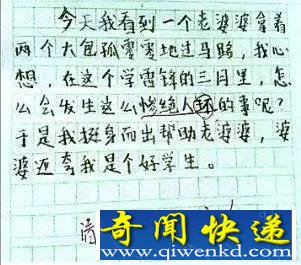 今天我看到一个老婆婆拿着
两个大包孤零零地过马路，我心
想，在这个学雷锋的三月里，怎
么会发生这么惨绝人环的事呢？
于是我挺身而出帮助老婆婆，婆
婆还夸我是个好学生。
清
奇闻快递
www.qiwenkd.com